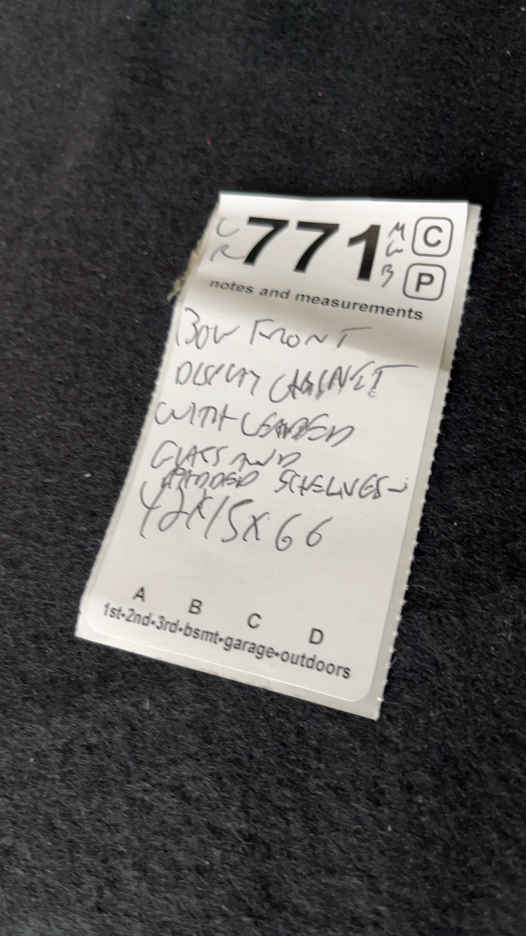 LR 771 MLB C
P
notes and measurements
BOW FRONT
DISPLAY CABINET
WITH LEADED
GLASS AND
SCHELVES-
42X15X66
A B C D
1st-2nd-3rd-bsmt-garage-outdoors